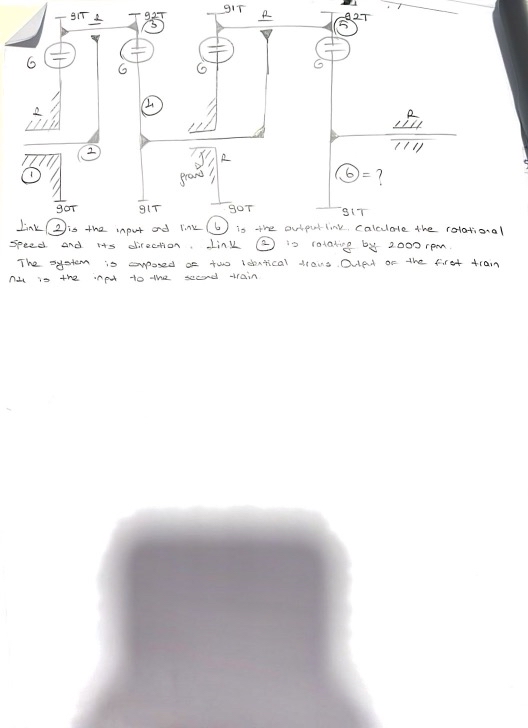 91T 2 92T 91T R 92T
3 5
G G G G
R 4 R
2
1 ground R 6 = ?
90T 91T 90T 91T
Link 2 is the input and link 6 is the output link. Calculate the rotational
speed and its direction. Link 2 is rotating by 2000 rpm.
The system is composed of two identical trains. Output of the first train
is the input to the second train.